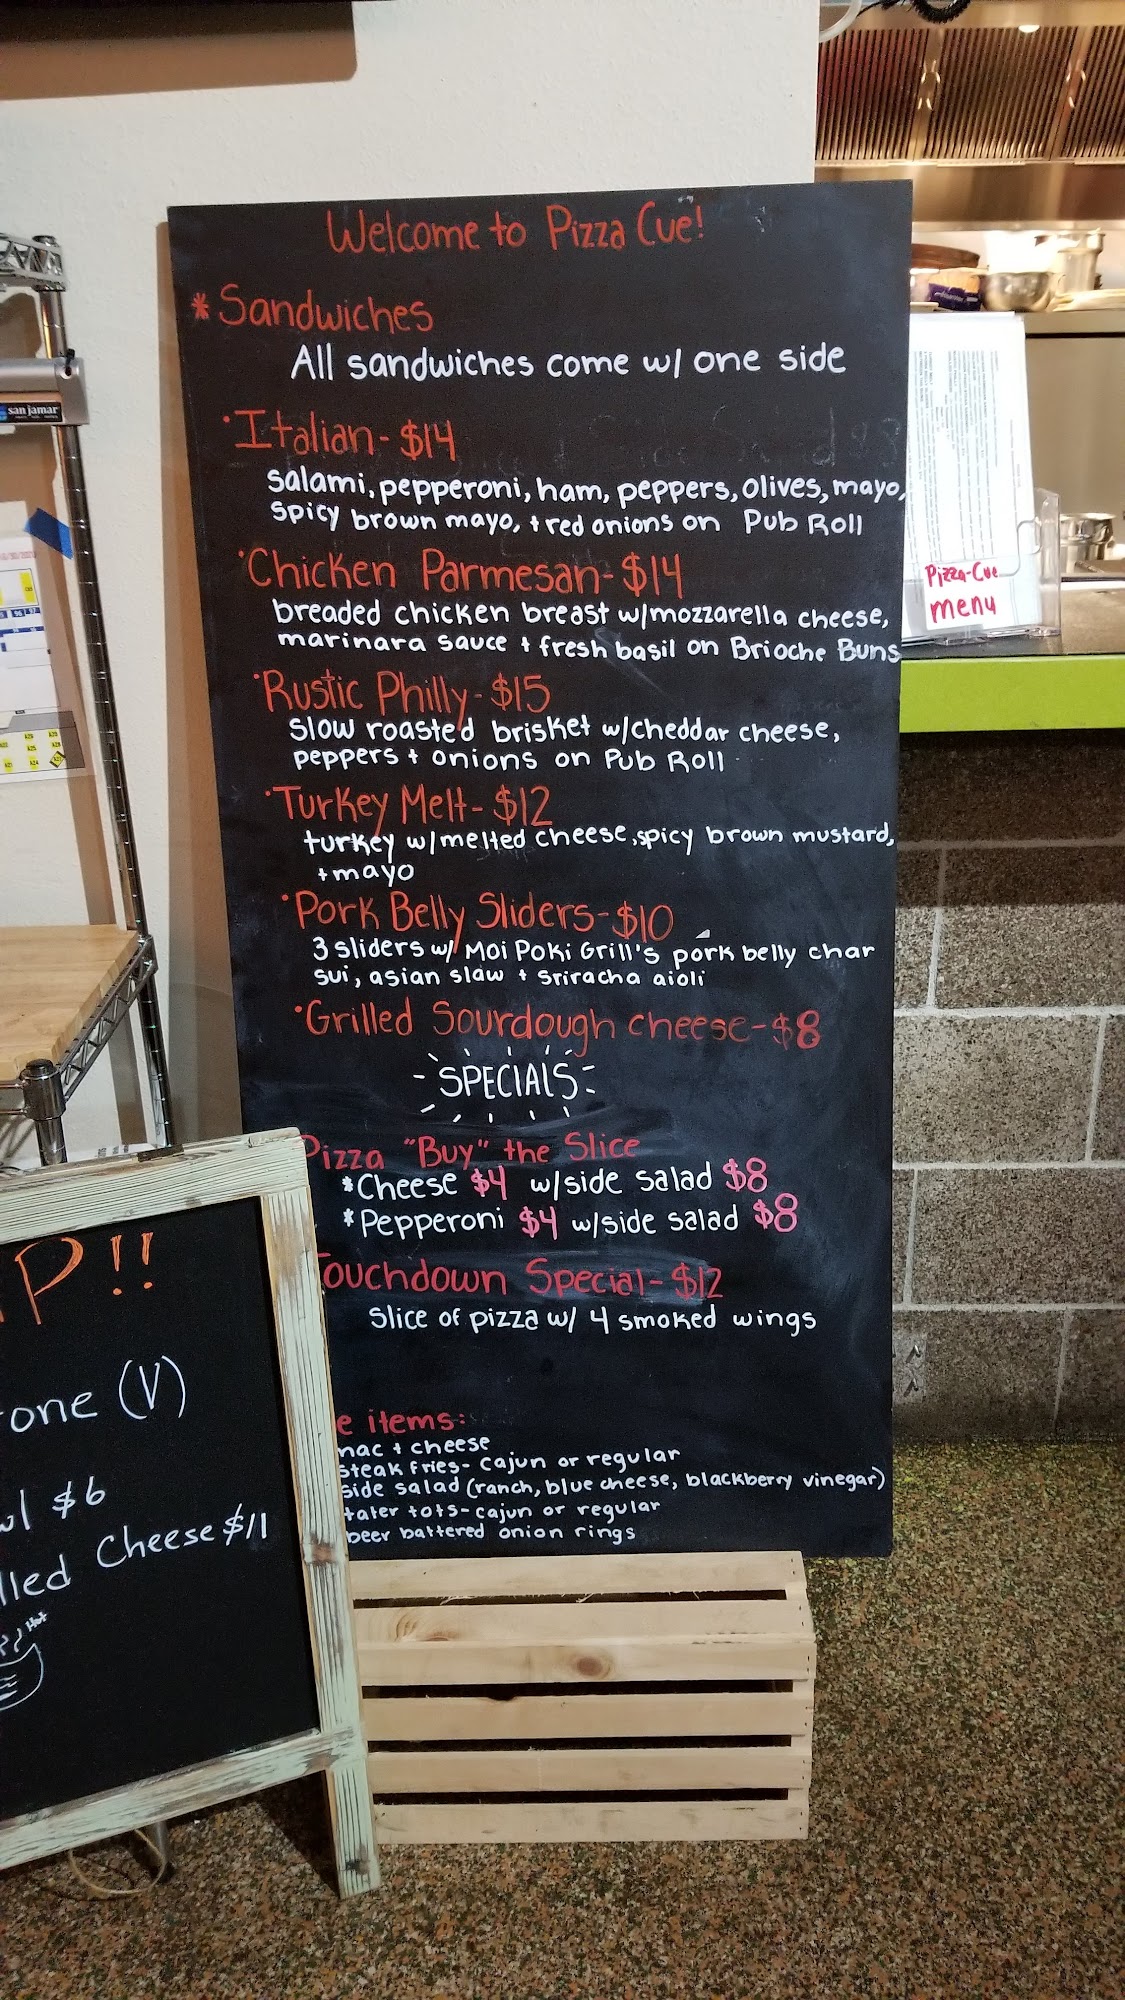 Welcome to Pizza Cue!
* Sandwiches
All sandwiches come w/ one side
• Italian - $14
salami, pepperoni, ham, peppers, olives, mayo,
spicy brown mayo, + red onions on Pub Roll
• Chicken Parmesan - $14
breaded chicken breast w/ mozzarella cheese,
marinara sauce + fresh basil on Brioche Buns
• Rustic Philly - $15
slow roasted brisket w/ cheddar cheese,
peppers + onions on Pub Roll
• Turkey Melt - $12
turkey w/ melted cheese, spicy brown mustard,
+ mayo
• Pork Belly Sliders - $10
3 sliders w/ Moi Poki Grill's pork belly char
sui, asian slaw + sriracha aioli
• Grilled Sourdough cheese - $8
SPECIALS
Pizza "Buy" the Slice
* Cheese $4 w/ side salad $8
* Pepperoni $4 w/ side salad $8
Touchdown Special - $12
Slice of pizza w/ 4 smoked wings
e items:
mac + cheese
steak fries - cajun or regular
side salad (ranch, blue cheese, blackberry vinegar)
tater tots - cajun or regular
beer battered onion rings
P!!
one (V)
wl $6
lled Cheese $11
Hot
san jamar
Pizza-Cue
menu